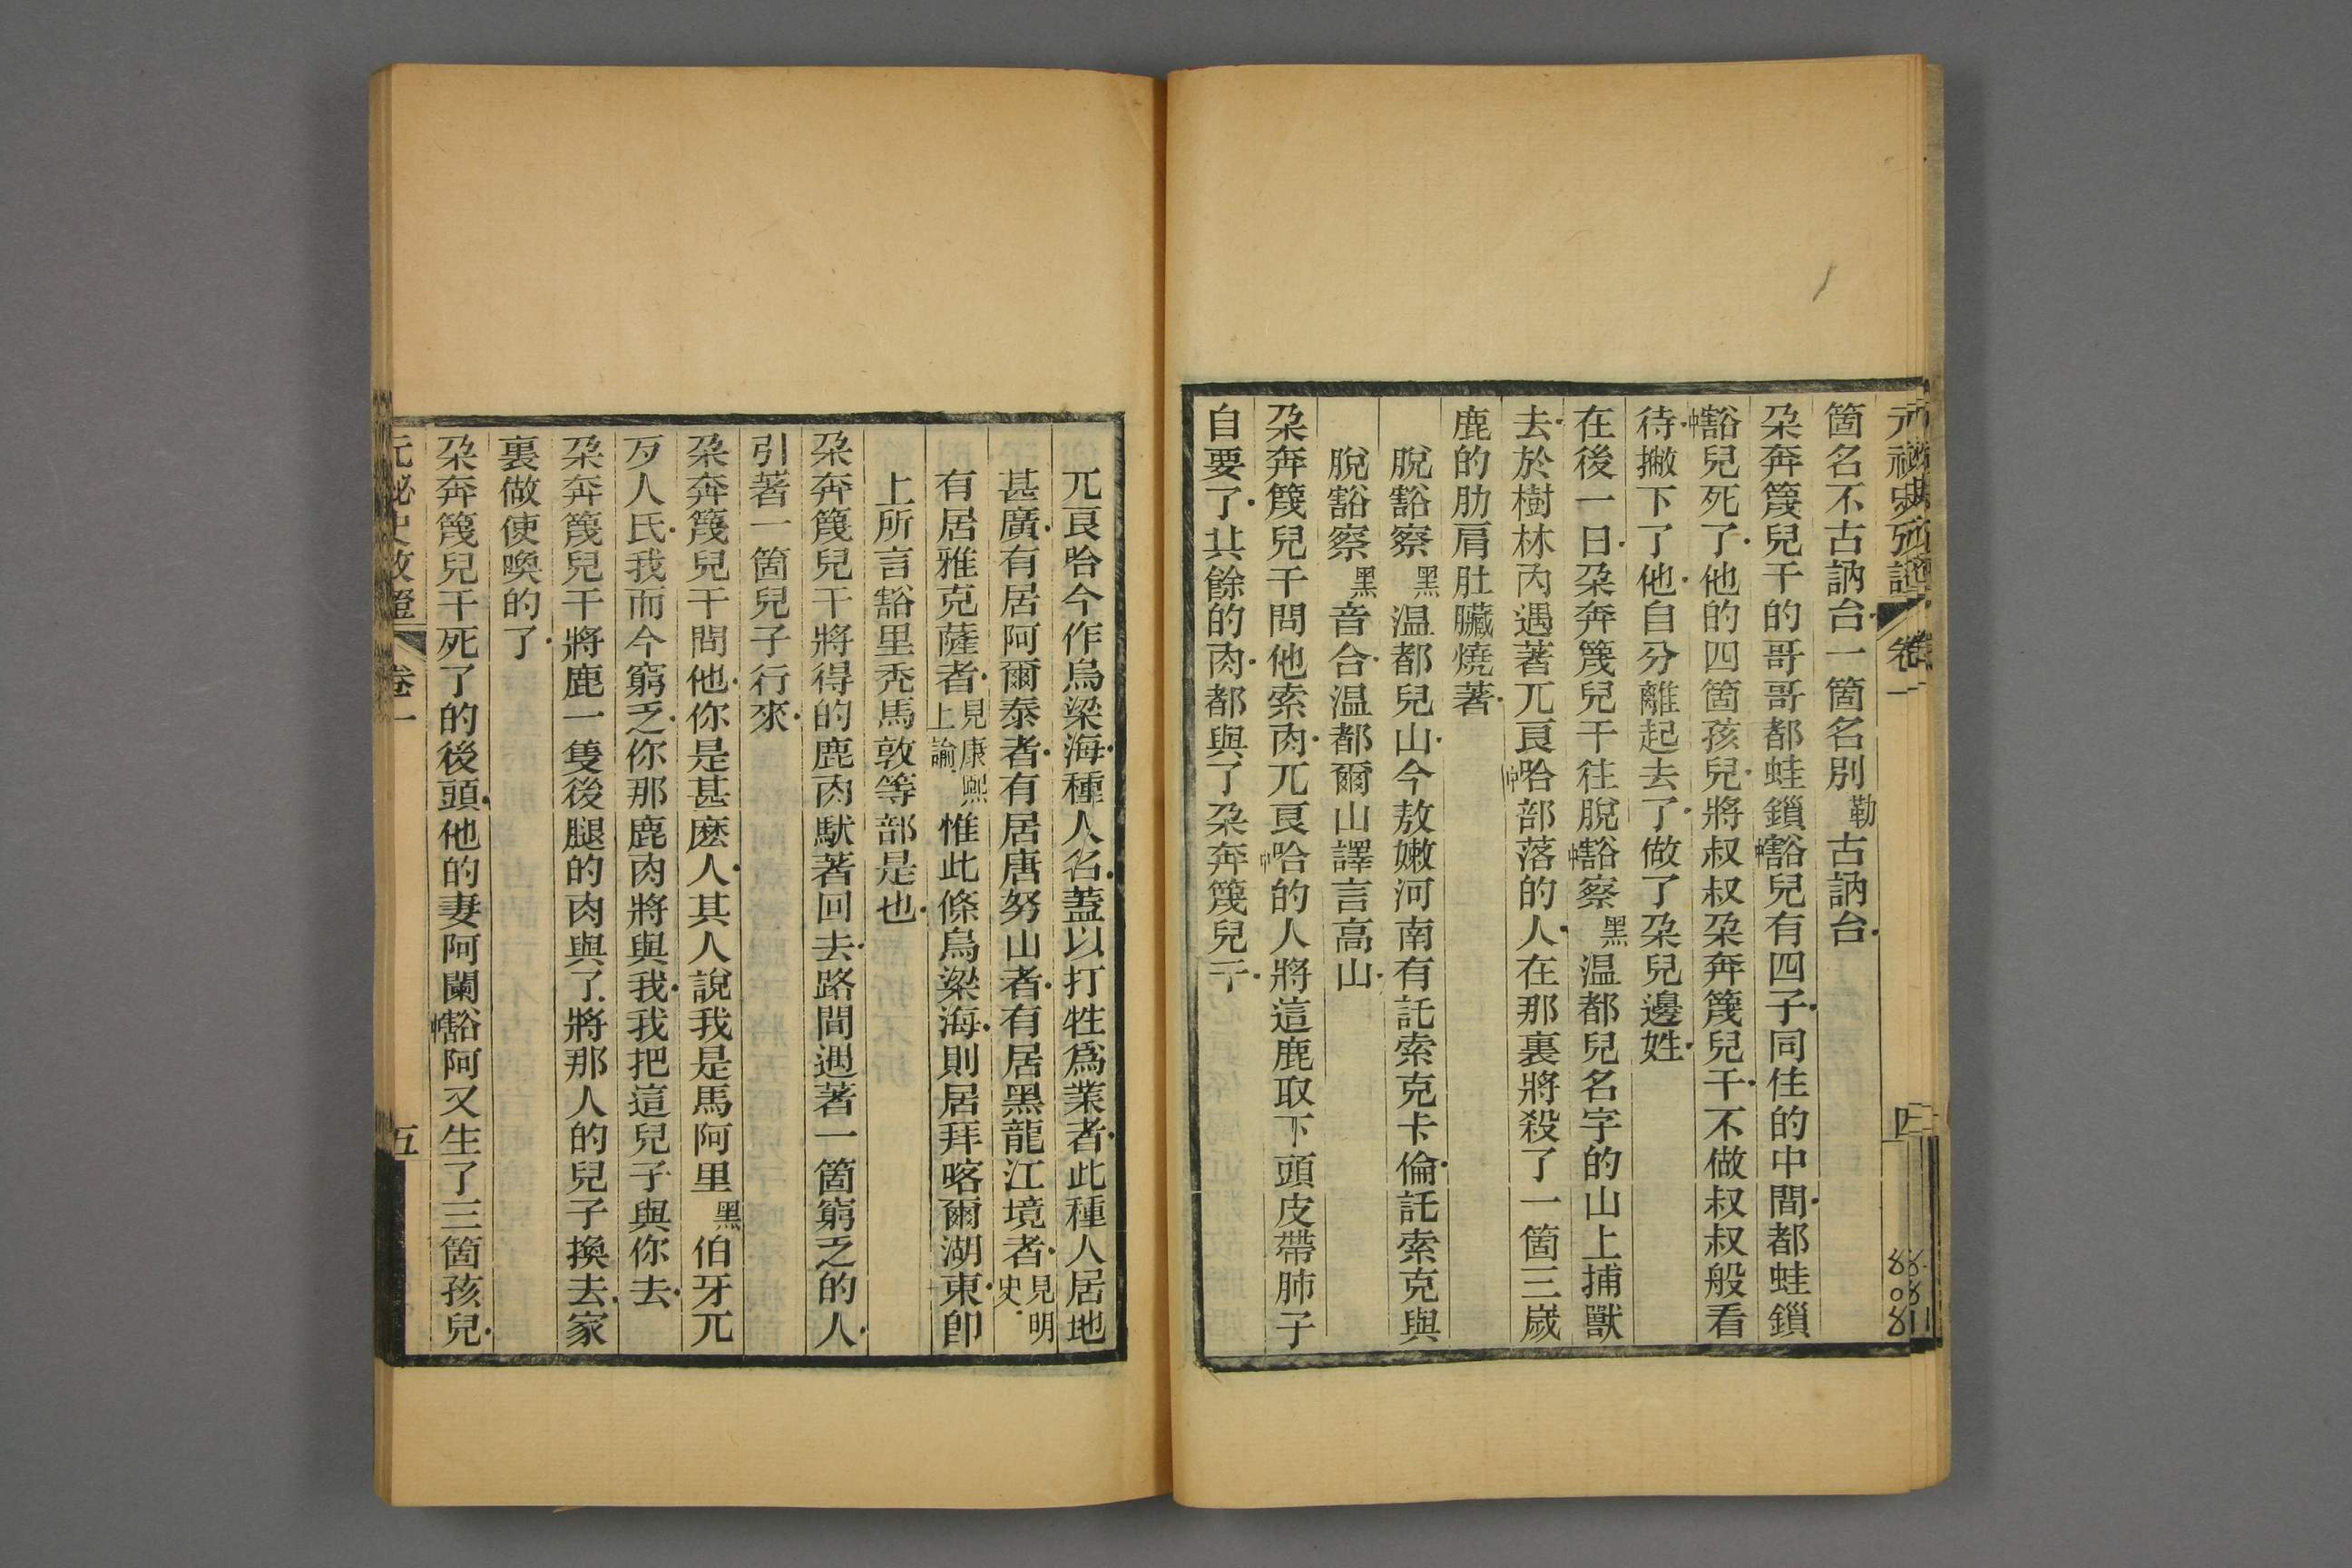 箇名不古訥台一箇名別勒古訥台
朶奔篾兒干的哥哥都蛙鎖中豁兒有四子同住的中間都蛙鎖
中豁兒死了他的四箇孩兒將叔叔朶奔篾兒干不做叔叔般看
待撇下了他自分離起去了做了朶兒邊姓
在後一日朶奔篾兒干往脫中豁察黑温都兒名字的山上捕獸
去於樹林內遇著兀良中哈部落的人在那裏將殺了一箇三歲
鹿的肋肩肚臟燒著
脫豁察黑温都兒山今敖嫩河南有託索克卡倫託索克與
脫豁察黑音合温都爾山譯言高山
朶奔篾兒干問他索肉兀良中哈的人將這鹿取下頭皮帶肺子
自要了其餘的肉都與了朶奔篾兒干
元祕史攷證 卷一 四
88081
兀良哈今作烏梁海種人名蓋以打牲爲業者此種人居地
甚廣有居阿爾泰者有居唐努山者有居黑龍江境者見明史
有居雅克薩者見康熙上諭惟此條烏梁海則居拜喀爾湖東卽
上所言豁里禿馬敦等部是也
朶奔篾兒干將得的鹿肉馱著回去路間遇著一箇窮乏的人
引著一箇兒子行來
朶奔篾兒干問他你是甚麽人其人說我是馬阿里黑伯牙兀
歹人氏我而今窮乏你那鹿肉將與我我把這兒子與你去
朶奔篾兒干將鹿一隻後腿的肉與了將那人的兒子換去家
裏做使喚的了
朶奔篾兒干死了的後頭他的妻阿闌中豁阿又生了三箇孩兒
元祕史攷證 卷一 五